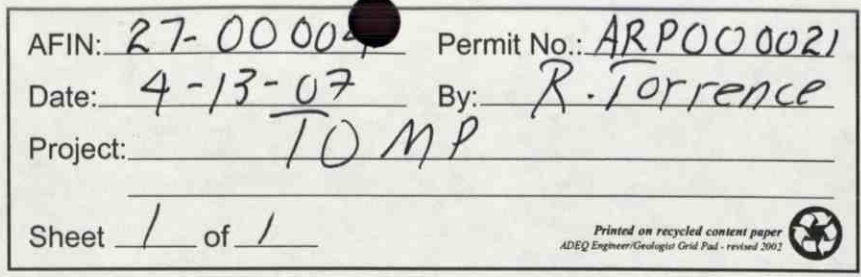 AFIN: 27-00004 Permit No.: ARP000021
Date: 4-13-07 By: R. Torrence
Project: TO MP
Sheet 1 of 1
Printed on recycled content paper
ADEQ Engineer/Geologist Grid Pad - revised 2002